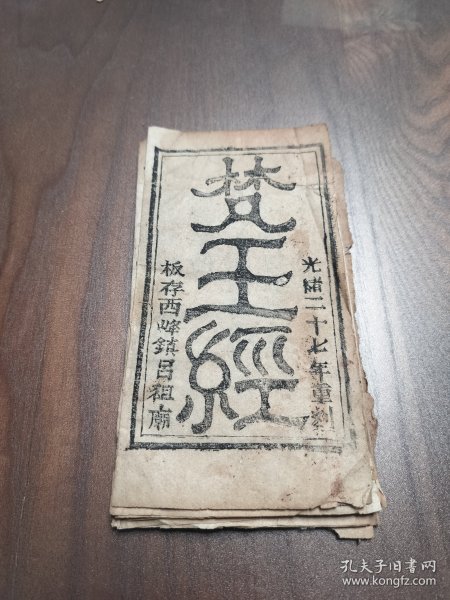 光緒二十七年重
梵王經
板存西峰鎮呂祖廟
孔夫子旧书网
www.kongfz.com